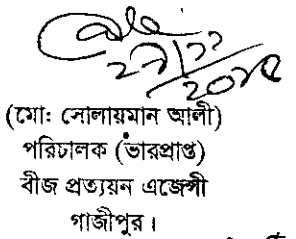 (মো: সোলায়মান আলী)
পরিচালক (ভারপ্রাপ্ত)
বীজ প্রত্যয়ন এজেন্সী
গাজীপুর।